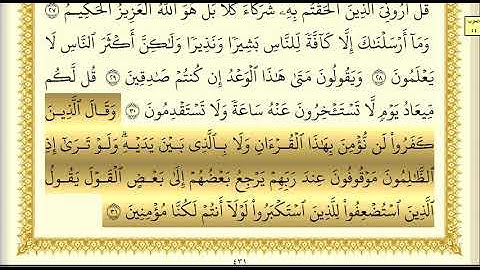 قُلْ أَرُونِيَ ٱلَّذِينَ أَلْحَقْتُم بِهِۦ شُرَكَآءَ كَلَّا بَلْ هُوَ ٱللَّهُ ٱلْعَزِيزُ ٱلْحَكِيمُ ٢٧
وَمَآ أَرْسَلْنَٰكَ إِلَّا كَآفَّةً لِّلنَّاسِ بَشِيرًا وَنَذِيرًا وَلَٰكِنَّ أَكْثَرَ ٱلنَّاسِ لَا
يَعْلَمُونَ ٢٨ وَيَقُولُونَ مَتَىٰ هَٰذَا ٱلْوَعْدُ إِن كُنتُمْ صَٰدِقِينَ ٢٩ قُل لَّكُم
مِّيعَادُ يَوْمٍ لَّا تَسْتَـْٔخِرُونَ عَنْهُ سَاعَةً وَلَا تَسْتَقْدِمُونَ ٣٠ وَقَالَ ٱلَّذِينَ
كَفَرُوا۟ لَن نُّؤْمِنَ بِهَٰذَا ٱلْقُرْءَانِ وَلَا بِٱلَّذِى بَيْنَ يَدَيْهِ ۗ وَلَوْ تَرَىٰٓ إِذِ
ٱلظَّٰلِمُونَ مَوْقُوفُونَ عِندَ رَبِّهِمْ يَرْجِعُ بَعْضُهُمْ إِلَىٰ بَعْضٍ ٱلْقَوْلَ يَقُولُ
ٱلَّذِينَ ٱسْتُضْعِفُوا۟ لِلَّذِينَ ٱسْتَكْبَرُوا۟ لَوْلَآ أَنتُمْ لَكُنَّا مُؤْمِنِينَ ٣١
٤٣١